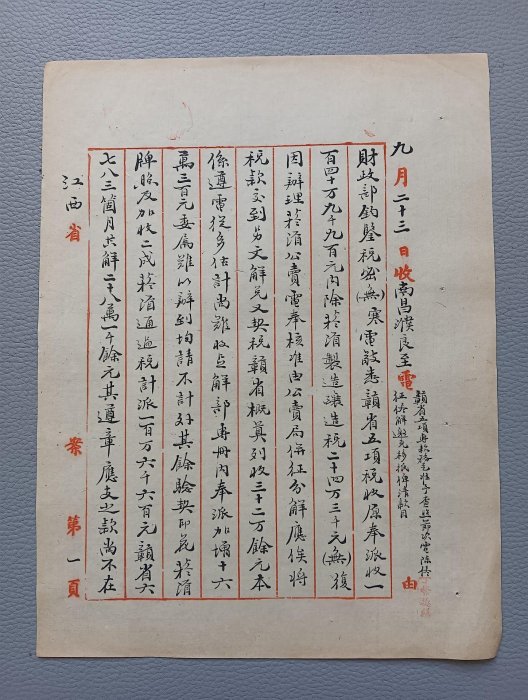 九月二十三日收南昌濮良至電 由
財政部鈞鑒税密(無)寒電敬悉贛省五項税收原奉派收一
百四十万九千九百元内除菸酒製造釀造税二十四万三千元(無)復
因辦理菸酒公賣電奉核准由公賣局併征分解應俟將
税款交到另文解兑又契税贛省概算列收三十二万餘元本
係遵電從多估計尚難收足解部專冊内奉派加增十六
萬三百元委属難以辦到均請不計外其餘驗契印花菸酒
牌照及加收二成菸酒通過税計派一百万六千六百元贛省六
七八三箇月共解二十八萬一千餘元其遵章應支之款尚不在
江西省 案 第一頁